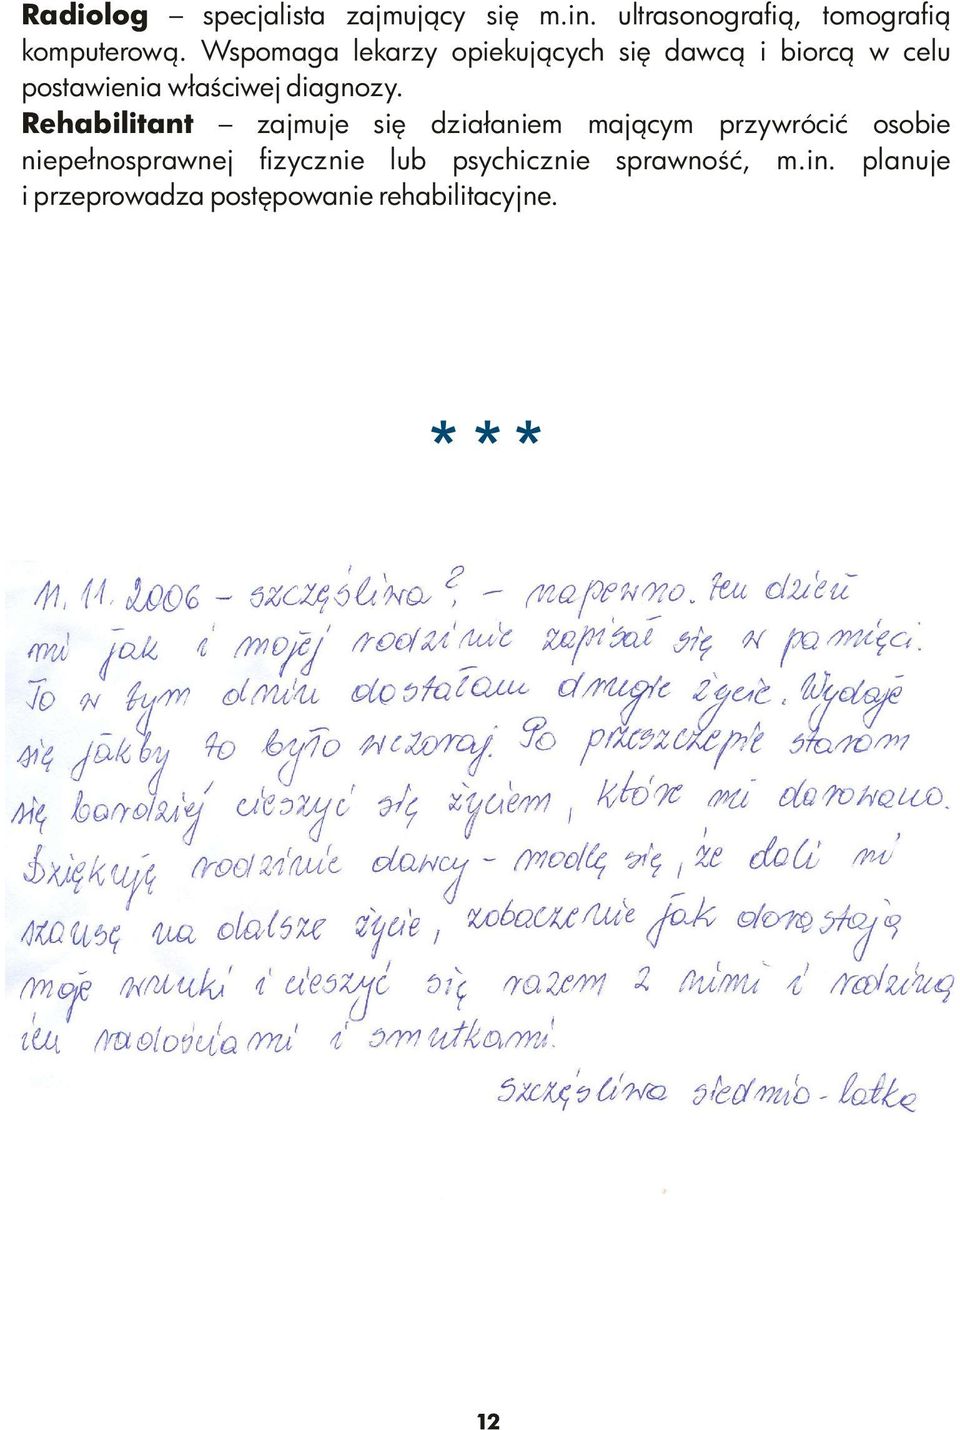 Radiolog – specjalista zajmujący się m.in. ultrasonografią, tomografią
komputerową. Wspomaga lekarzy opiekujących się dawcą i biorcą w celu
postawienia właściwej diagnozy.
Rehabilitant – zajmuje się działaniem mającym przywrócić osobie
niepełnosprawnej fizycznie lub psychicznie sprawność, m.in. planuje
i przeprowadza postępowanie rehabilitacyjne.
* * *
11. 11. 2006 – szczęśliwa?, – napewno. Ten dzień
mi jak i mojej rodzinie zapisał się w pamięci.
To w tym dniu dostałam drugie życie. Wydaje
się jakby to było wczoraj. Po przeszczepie staram
się bardziej cieszyć się życiem, które mi darowano.
Dziękuję rodzinie dawcy – modlę się, że dali mi
szansę na dalsze życie, zobaczenie jak dorastają
moje wnuki i cieszyć się razem z nimi i rodziną
ich radościami i smutkami.
Szczęśliwa siedmio-latka
12